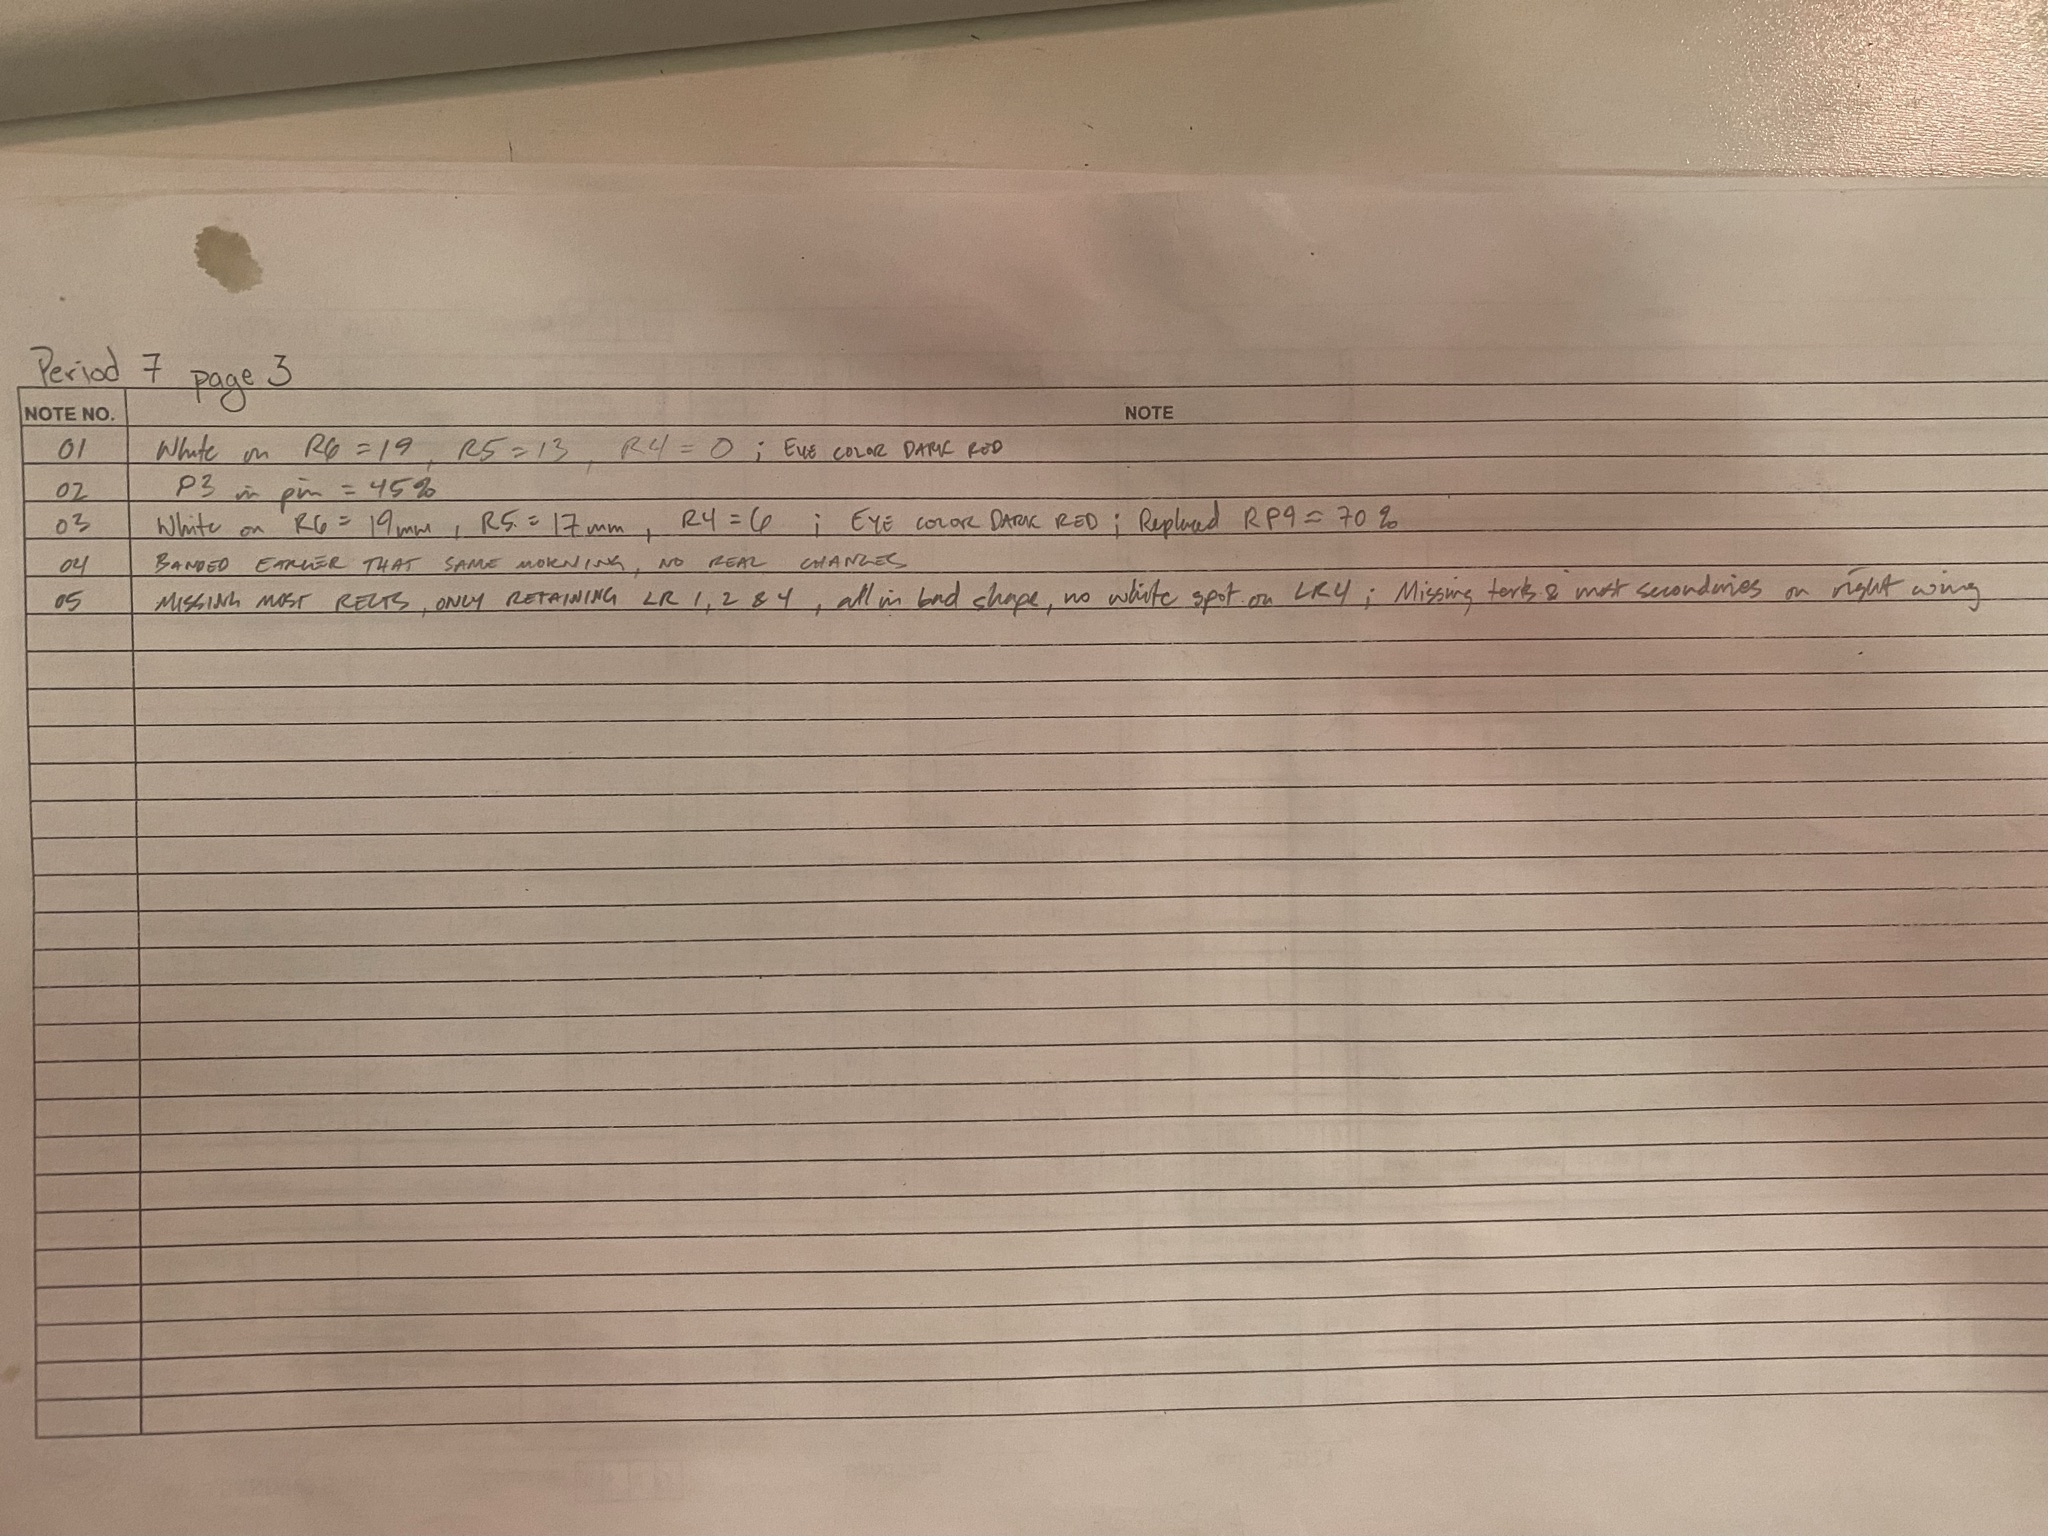 Period 7 page 3
NOTE NO. NOTE
01 White on R6 = 19, R5 = 13, R4 = 0 ; EYE COLOR DARK RED
02 P3 in pin = 45%
03 White on R6 = 19mm, R5 = 17mm, R4 = 6 ; EYE COLOR DARK RED ; Replaced RP9 = 70%
04 BANDED EARLIER THAT SAME MORNING, NO REAL CHANGES
05 MISSING MOST RECTS, ONLY RETAINING LR 1, 2 & 4, all in bad shape, no white spot on LR4 ; Missing terts & most secondaries on right wing